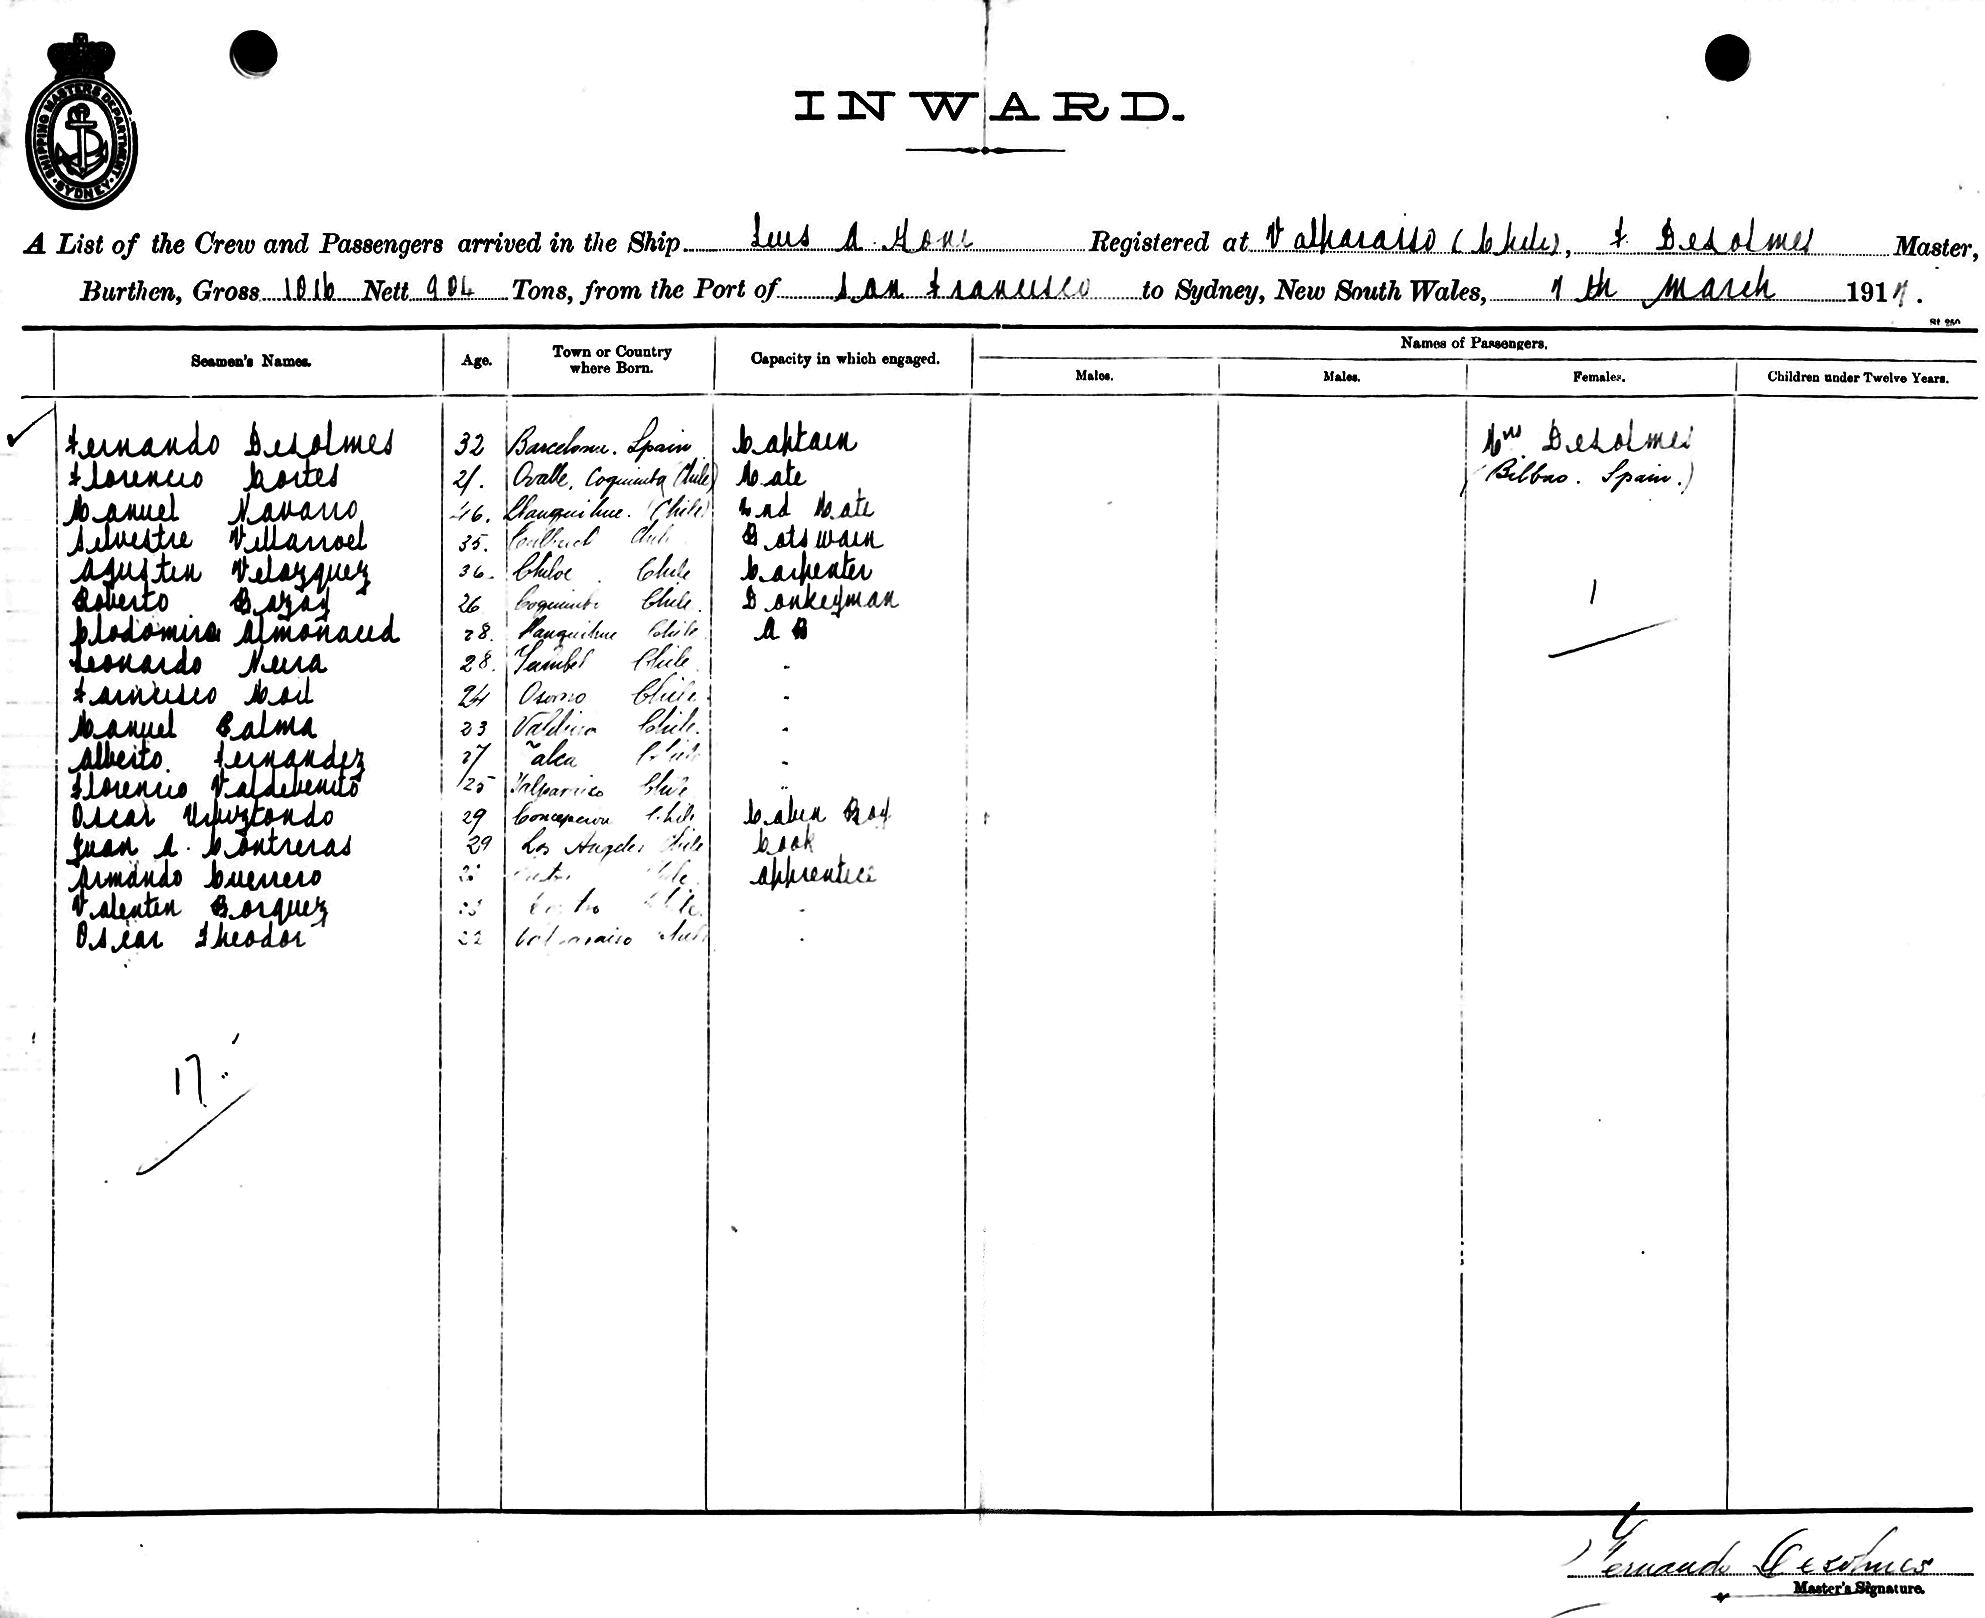 SHIPPING MASTERS DEPARTMENT
SYDNEY
INWARD.
A List of the Crew and Passengers arrived in the Ship Luis A. Goni Registered at Valparaiso (Chile), F. Desolmes Master,
Burthen, Gross 1016 Nett 904 Tons, from the Port of San Francisco to Sydney, New South Wales, 7th March 1917.
Names of Passengers.
Seamen's Names. Age. Town or Country where Born. Capacity in which engaged. Males. Males. Females. Children under Twelve Years.
Fernando Desolmes 32 Barcelona. Spain Captain Mrs Desolmes
Florencio Cortes 21. Ovalle, Coquimbo (Chile) Mate (Bilbao. Spain.)
Manuel Navarro 46. Llanquihue. (Chile) 2nd Mate
Silvestre Villarroel 35. Chile Botswain
Agustin Velazquez 36. Chiloe. Chile Carpenter 1
Roberto Bazay 26 Coquimbo Chile. Donkeyman
Clodomiro Almonacid 28. Llanquihue Chile AB
Leonardo Neira 28. Yumbel Chile. -
Francisco 24 Osorno Chile. -
Manuel Balma 23 Valdivia Chile. -
Alberto Fernandez 27 Talca Chile -
Florencio Valdebenito 25 Valparaiso Chile "
Oscar 29 Concepcion Chile Cabin Boy
Juan A. Contreras 29 Los Angeles Chile Cook
Armando Guerrero Chile. Apprentice
Valentin Borquez Castro Chile. -
Oscar Theodor 22 Valparaiso Chile -
17.
Fernando Desolmes
Master's Signature.